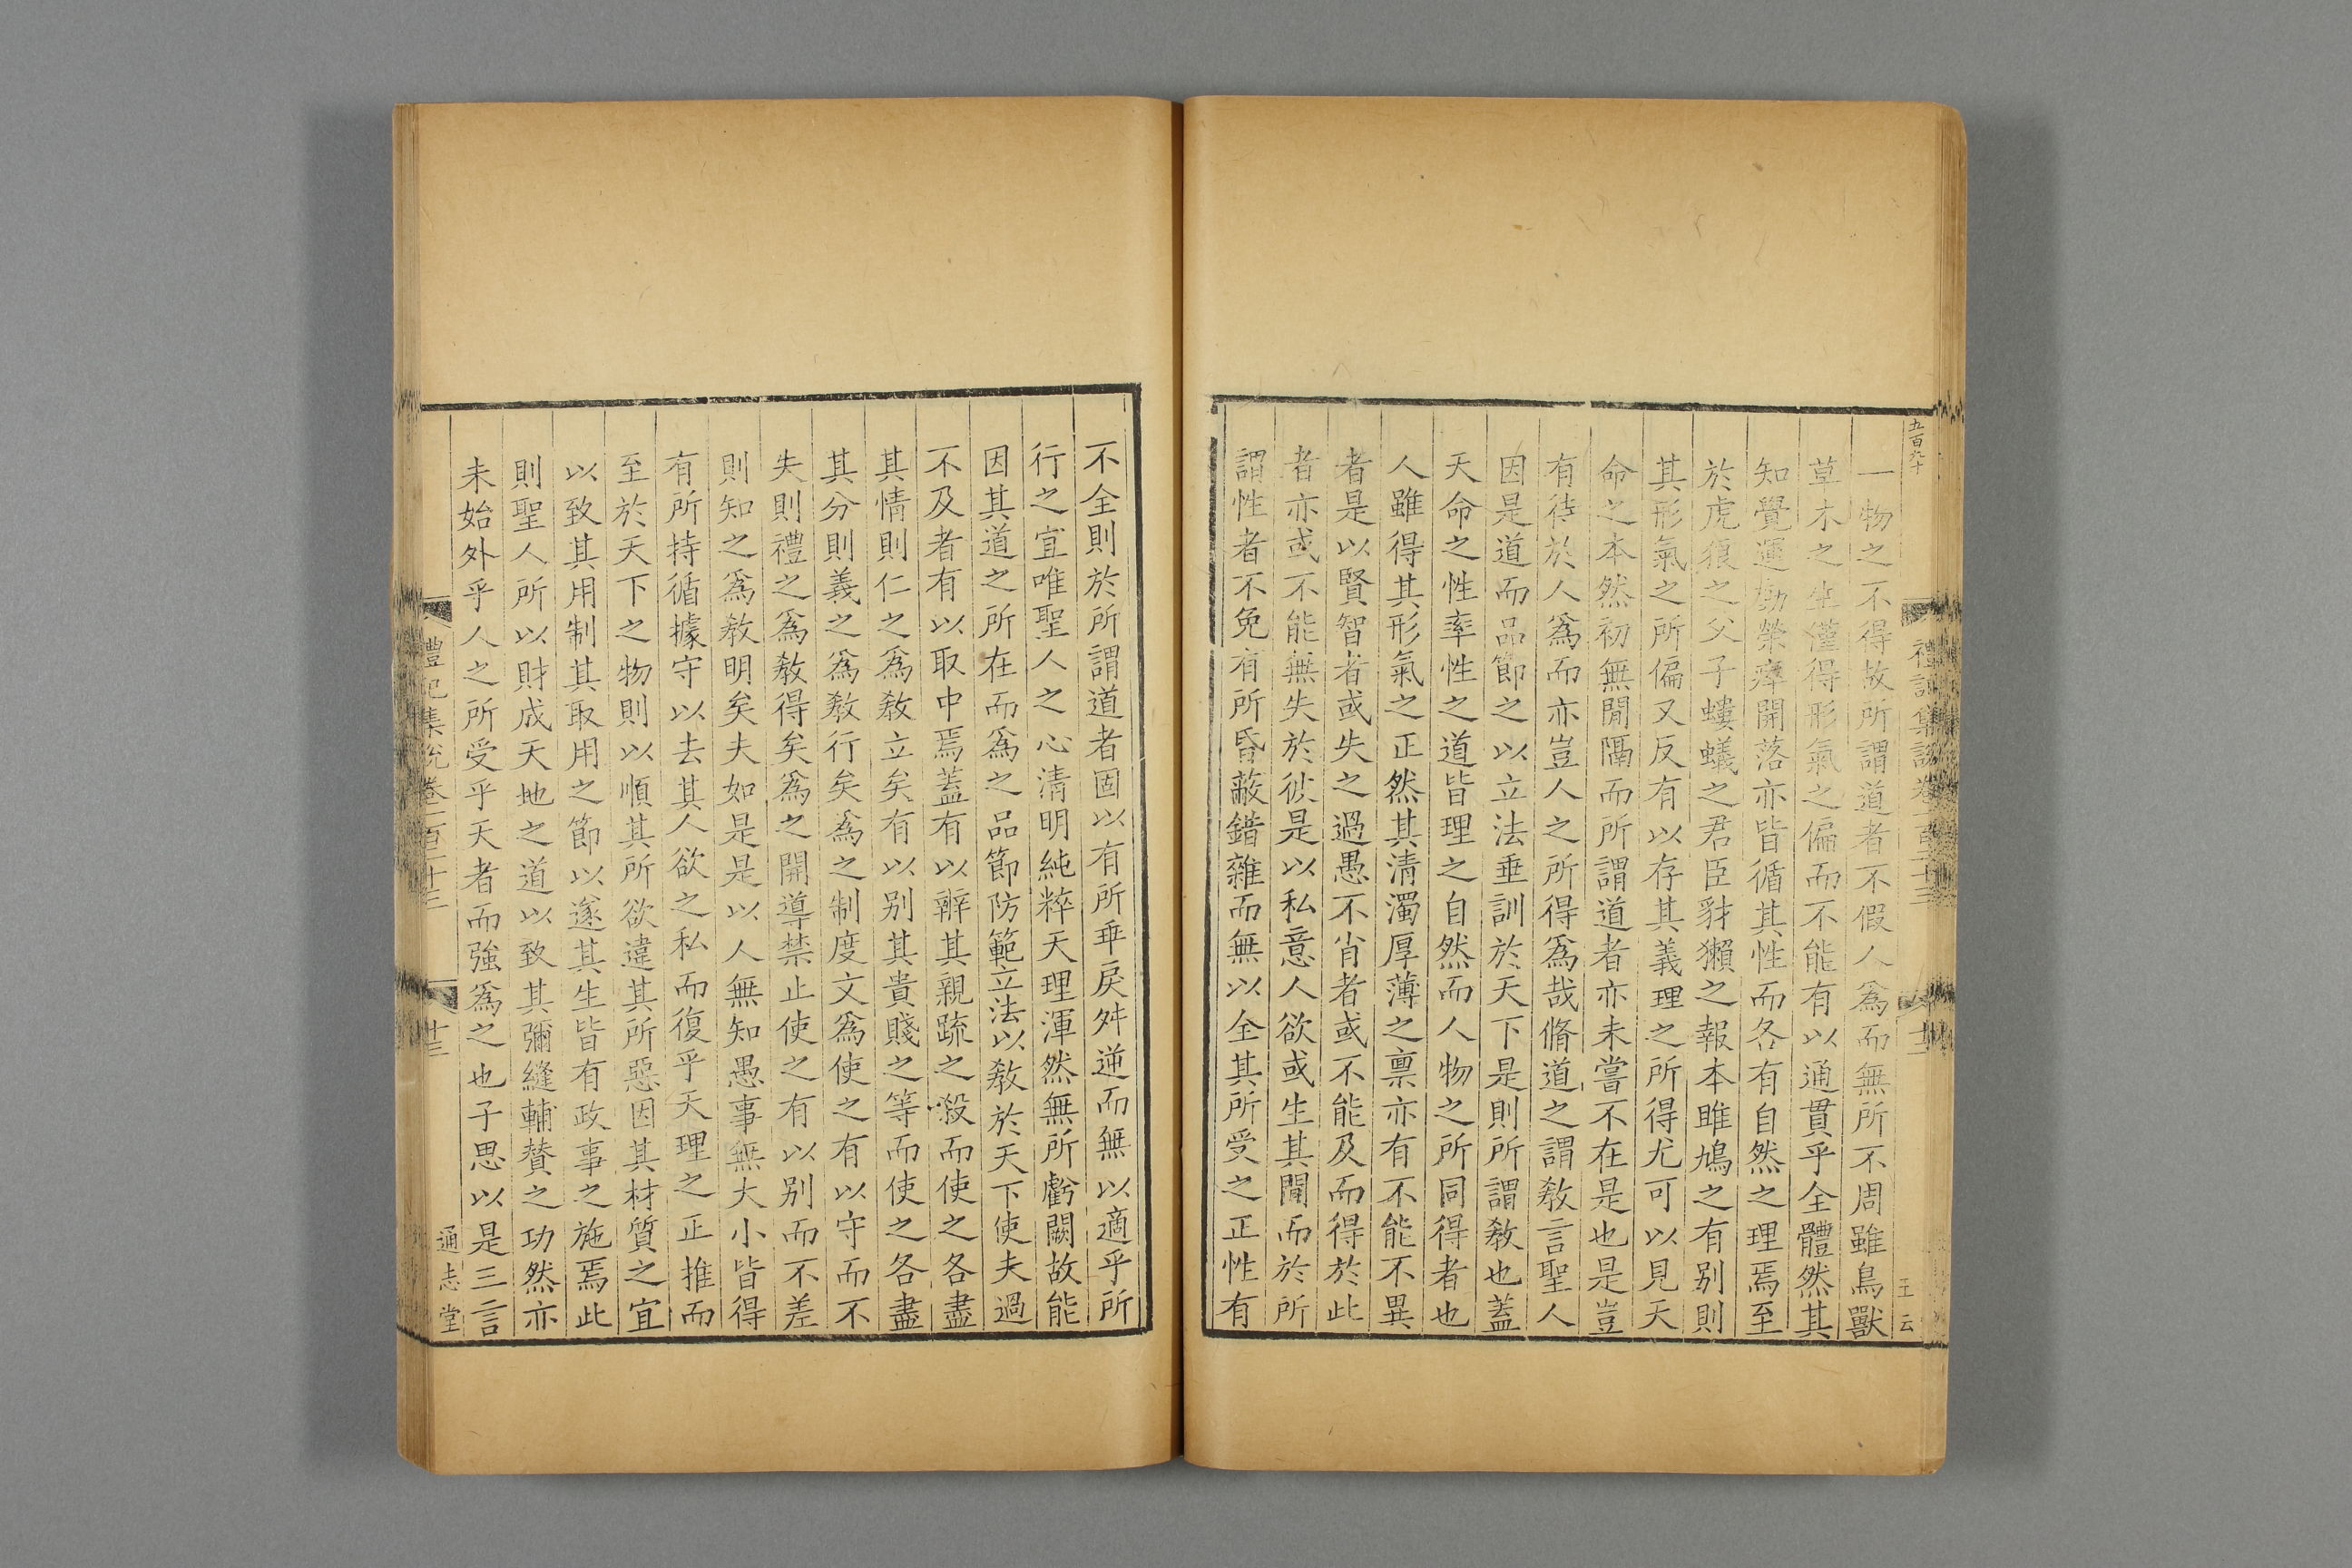 五百九十
一物之不得故所謂道者不假人爲而無所不周雖鳥獸
草木之生僅得形氣之偏而不能有以通貫乎全體然其
知覺運動榮瘁開落亦皆循其性而各有自然之理焉至
於虎狼之父子螻蟻之君臣豺獺之報本雎鳩之有别則
其形氣之所偏又反有以存其義理之所得尤可以見天
命之本然初無閒隔而所謂道者亦未嘗不在是也是豈
有待於人爲而亦豈人之所得爲哉脩道之謂敎言聖人
因是道而品節之以立法垂訓於天下是則所謂敎也蓋
天命之性率性之道皆理之自然而人物之所同得者也
人雖得其形氣之正然其清濁厚薄之禀亦有不能不異
者是以賢智者或失之過愚不肖者或不能及而得於此
者亦或不能無失於彼是以私意人欲或生其閒而於所
謂性者不免有所昏蔽錯雜而無以全其所受之正性有
禮記集說卷一百二十三
王云
不全則於所謂道者固以有所乖戾舛逆而無以適乎所
行之宜唯聖人之心清明純粹天理渾然無所虧闕故能
因其道之所在而爲之品節防範立法以敎於天下使夫過
不及者有以取中焉蓋有以辨其親疏之殺而使之各盡
其情則仁之爲敎立矣有以别其貴賤之等而使之各盡
其分則義之爲敎行矣爲之制度文爲使之有以守而不
失則禮之爲敎得矣爲之開導禁止使之有以别而不差
則知之爲敎明矣夫如是是以人無知愚事無大小皆得
有所持循據守以去其人欲之私而復乎天理之正推而
至於天下之物則以順其所欲違其所惡因其材質之宜
以致其用制其取用之節以遂其生皆有政事之施焉此
則聖人所以財成天地之道以致其彌縫輔贊之功然亦
未始外乎人之所受乎天者而強爲之也子思以是三言
禮記集說卷一百二十三
十三
通志堂